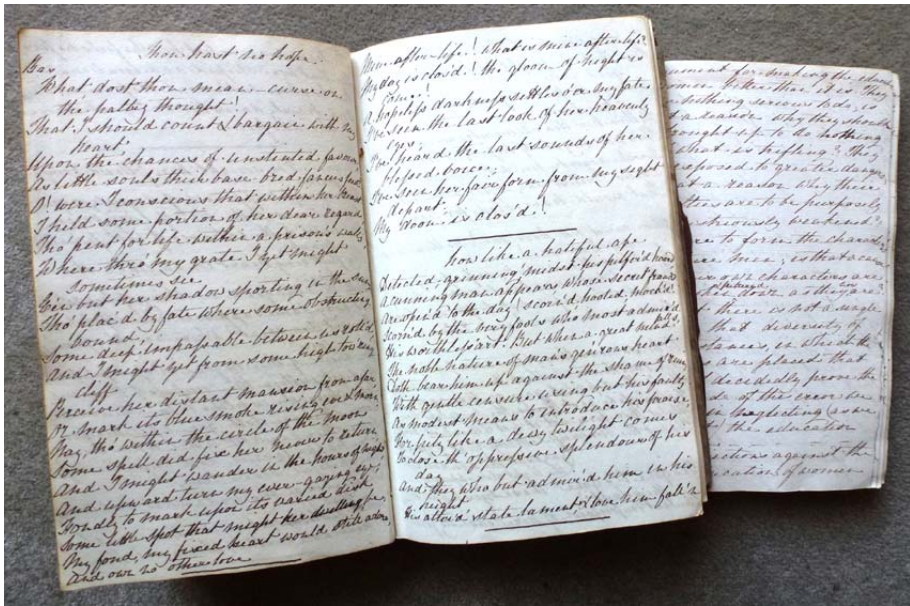 Thou hast no hope
Bas
What dost thou mean – curse on
the paltry thought!
That I should count & bargain with my
heart
Upon the chances of unstinted favour
As little souls their base bred fancies feed
O! were I conscious that within her breast
I held some portion of her dear regard
Tho' pent for life within a prison's walls
Where thro' my grate I yet might
sometimes see
E'en but her shadow sporting in the sun
Tho' plac'd by fate where some obstructing
bound
Some deep impassable between us roll'd
And I might yet from some high tow'ring
cliff
Perceive her distant mansion from afar
Or mark its blue smoke rising eve & morn
Nay, tho' within the circle of the moon
Some spell did fix her never to return
And I might wander in the hours of night
And upward turn my ever-gazing eye
Fondly to mark upon its varied disk
Some little spot that might her dwelling be
My fond, my fixed heart would still adore
And own no other love
Mine after-life! what is mine after-life?
My day is clos'd! the gloom of night is
come!
A hopeless darkness settles o'er my fate
I've seen the last look of her heavenly
eyes
I've heard the last sounds of her
blessed voice
I've seen her fair form from my sight
depart
My doom is clos'd!
how like a hateful ape
Detected grinning midst his pilfer'd hoard
A cunning man appears whose secret frauds
Are open'd to the day scoff'd hooted, mock'd
Scorn'd by the very fools who most admir'd
His worthless art. But when a great mind falls
The noble nature of man's gen'rous heart
Doth bear him up against the shame of ruin
With gentle censure using but his faults
As modest means to introduce his praise
For pity like a dewy twilight comes
To close th' oppressive splendour of his
day
And they who but admir'd him in his
height
His alter'd state lament & love him fall'n
ument for making the edu
omen better than it is. They
nothing serious to do, is
t a reason why they should
rought up to do nothing
what is trifling? They
xposed to greater danger,
at a reason why their
lties are to be purposely
striously weakened?
re to form the charact
re men, is that a cause
own characters are
they are?
there is not a single
that diversity of
stances, in which the
are placed that
decidedly prove the
de of the error we
in neglecting (as we
the education
ections against the
cation of women